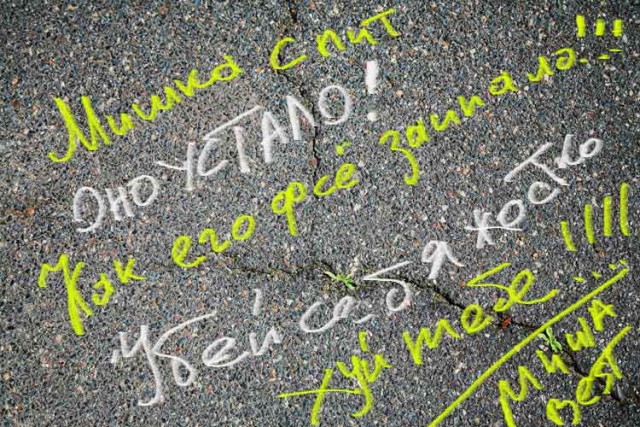 Мишка спит
Оно УСТАЛО!
Как его фсё заипало!!!
Убей себя жостко
Хуй тебе !!!!
Миша